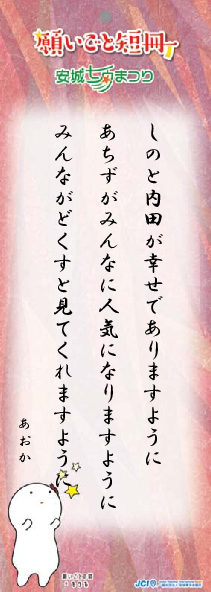 願いごと短冊
安城七夕まつり
しのと内田が幸せでありますように
あちずがみんなに人気になりますように
みんながどくすと見てくれますように
あおか
JCI